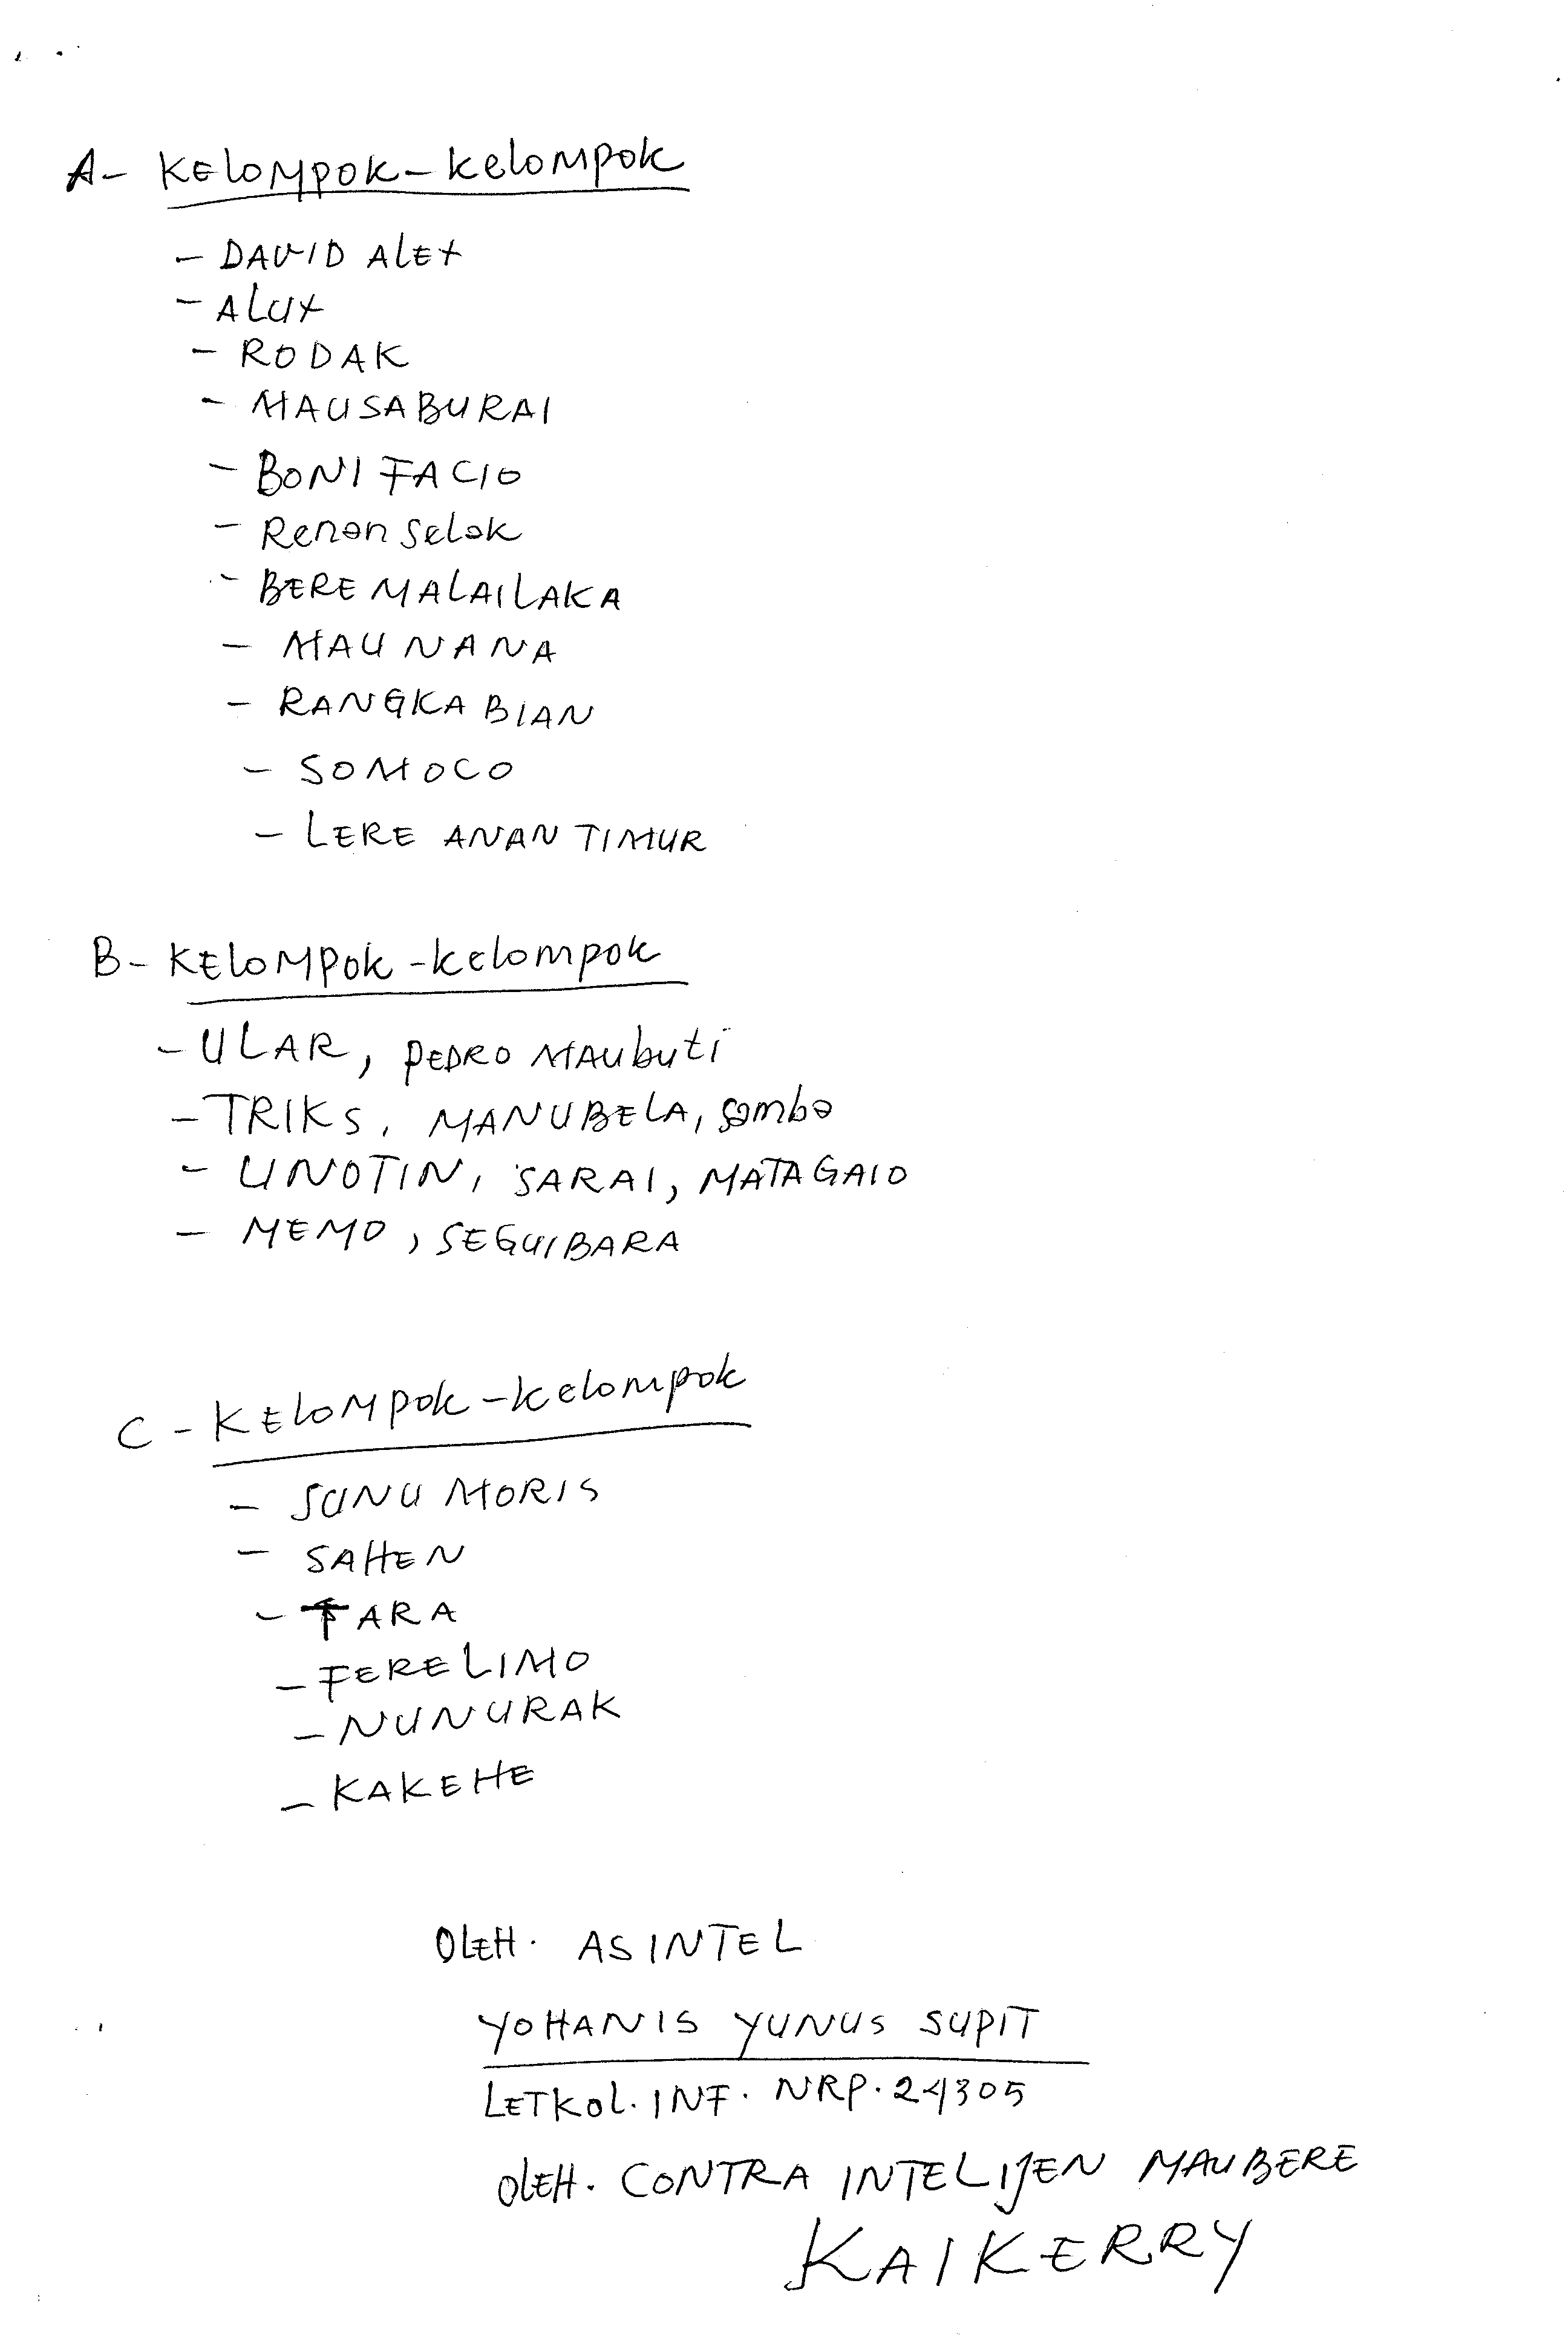 A- KELOMPOK-KELOMPOK
- DAVID ALEX
- ALUX
- RODAK
- MAUSABURAI
- BONIFACIO
- Renan Selak
- BERE MALAILAKA
- MAU NANA
- RANGKABIAN
- SOMOCO
- LERE ANAN TIMUR
B- KELOMPOK-kelompok
- ULAR, PEDRO MAUbuti
- TRIKS, MANUBELA, Samba
- UNOTIN, SARAI, MATAGAIO
- MEMO, SEGUIBARA
C- KELOMPOK-kelompok
- SUNU MORIS
- SAHEN
- TARA
- FERELIMO
- NUNURAK
- KAKEHE
OLEH. ASINTEL
YOHANIS YUNUS SUPIT
LETKOL. INF. NRP. 24305
OLEH. CONTRA INTELIJEN MAUBERE
KAIKERRY